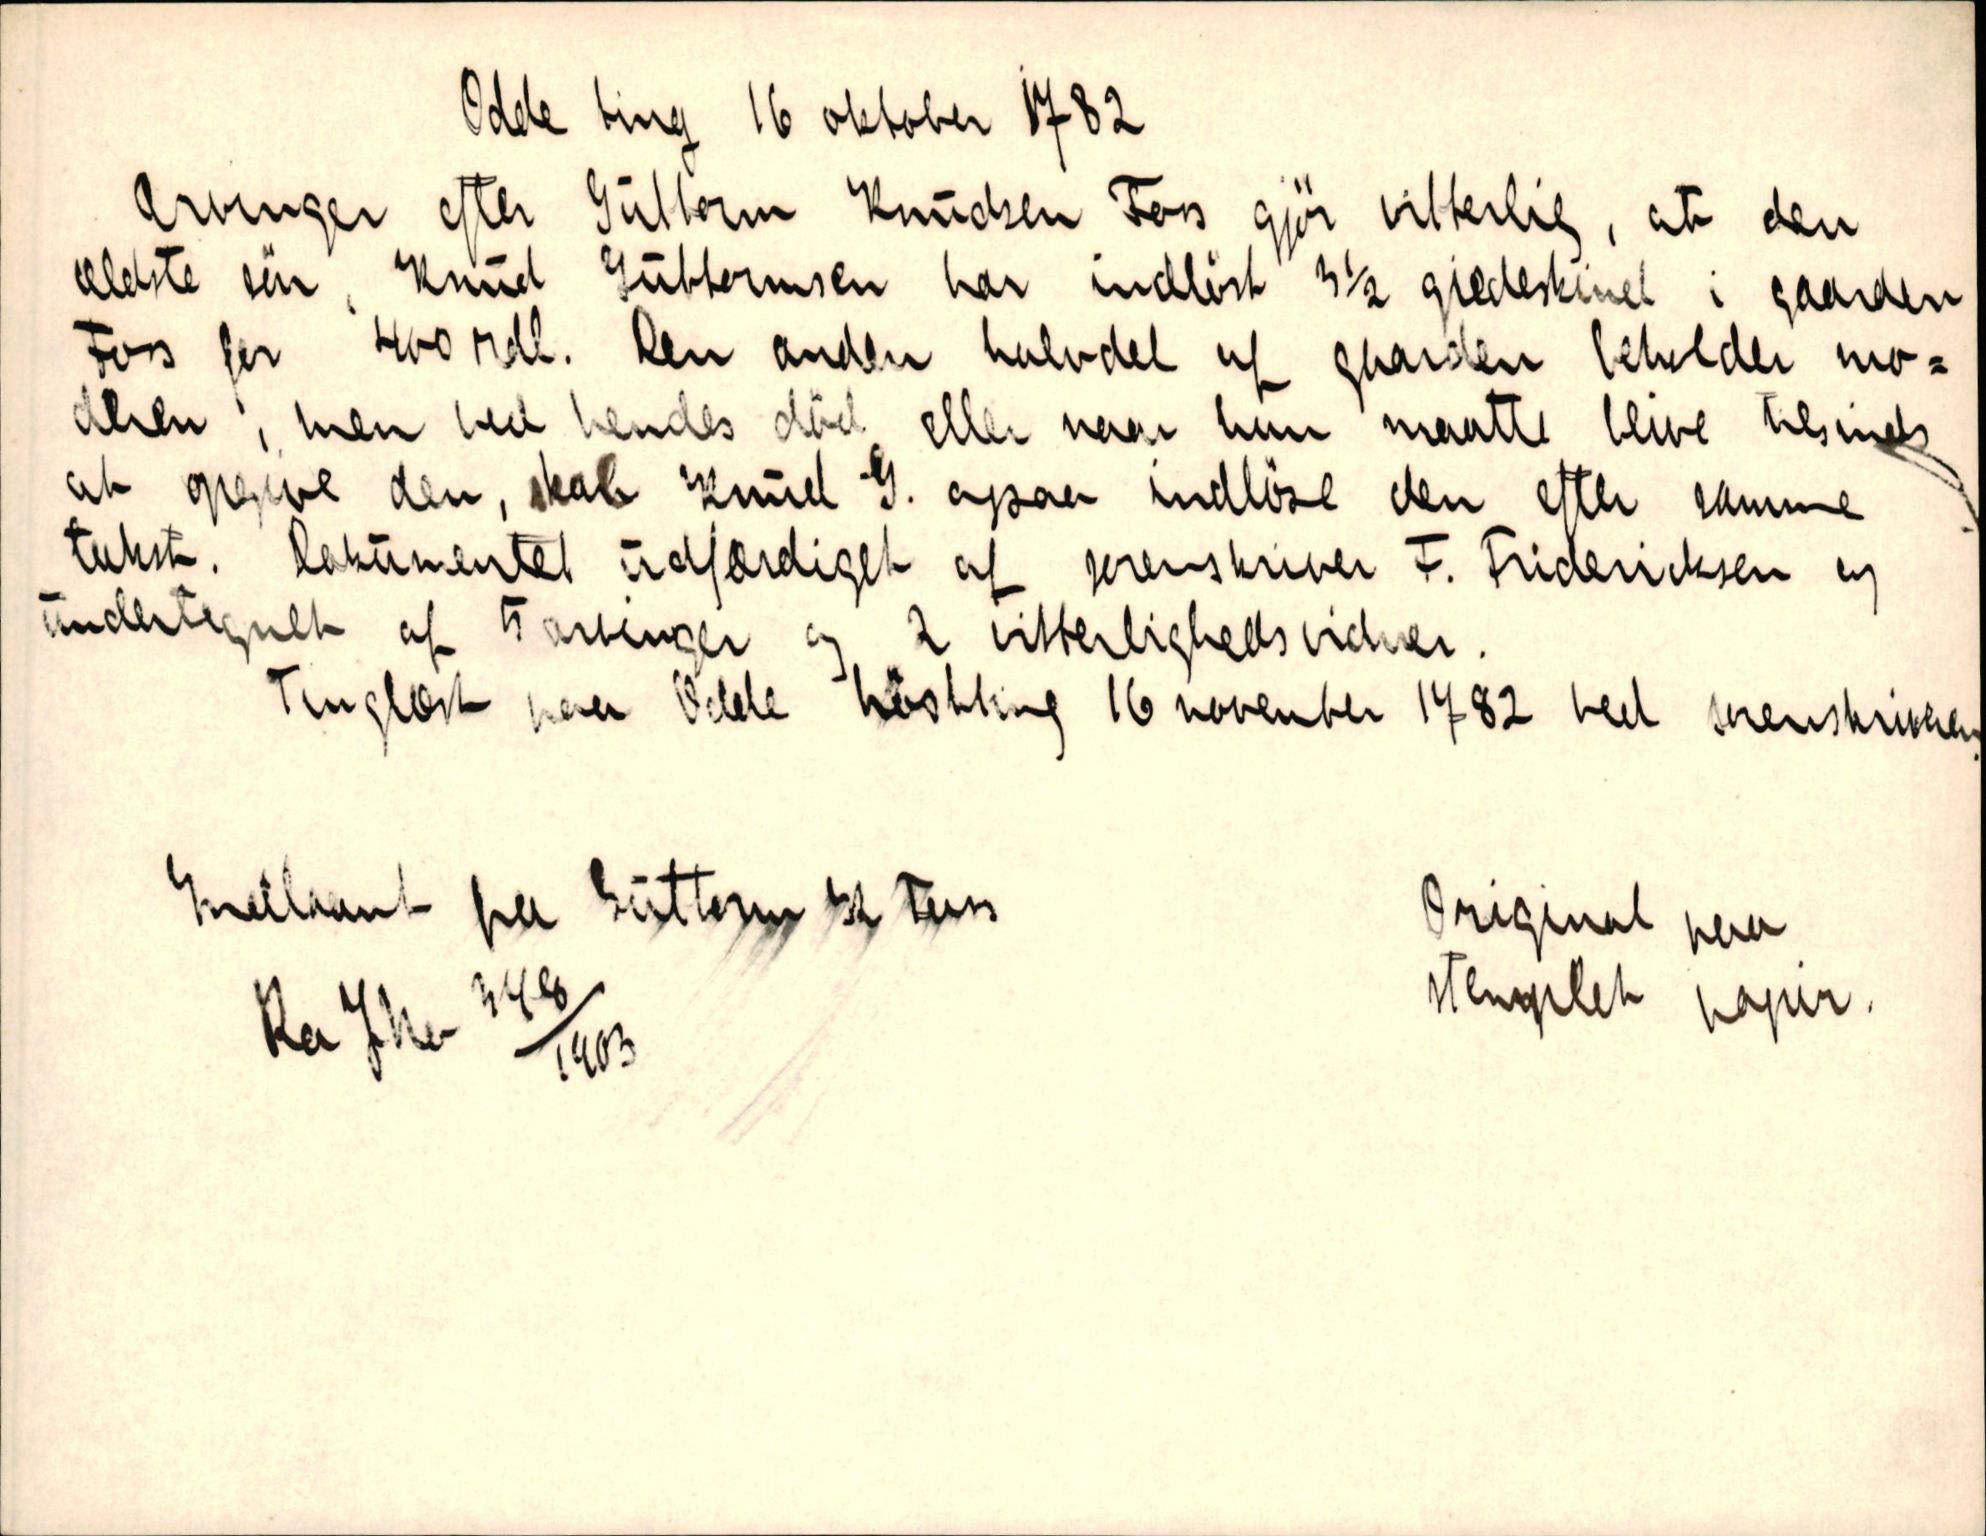 Odde ting 16 oktober 1782
Arvinger efter Guttorm Knudsen Foss gjör vitterlig, at den
ældste sön, Knud Guttormsen har indlöst 3½ gjedeskind i gaarden
Foss for 400 rdl. Den anden halvdel af gaarden beholder mo=
deren, men ved hendes död eller naar hun maatte blive tilsinds
at opgive den, skal Knud G. ogsaa indlöse den efter samme
takst. Dokumentet udfærdiget af sorenskriver F. Fridericksen og
undertegnet af 5 arvinger og 2 vitterlighedsvidner.
Tinglæst paa Odde höstting 16 november 1782 ved sorenskriveren.
Innlaant fra Guttorm K Foss
Ra JNo 348/1903
Original paa
stemplet papir.